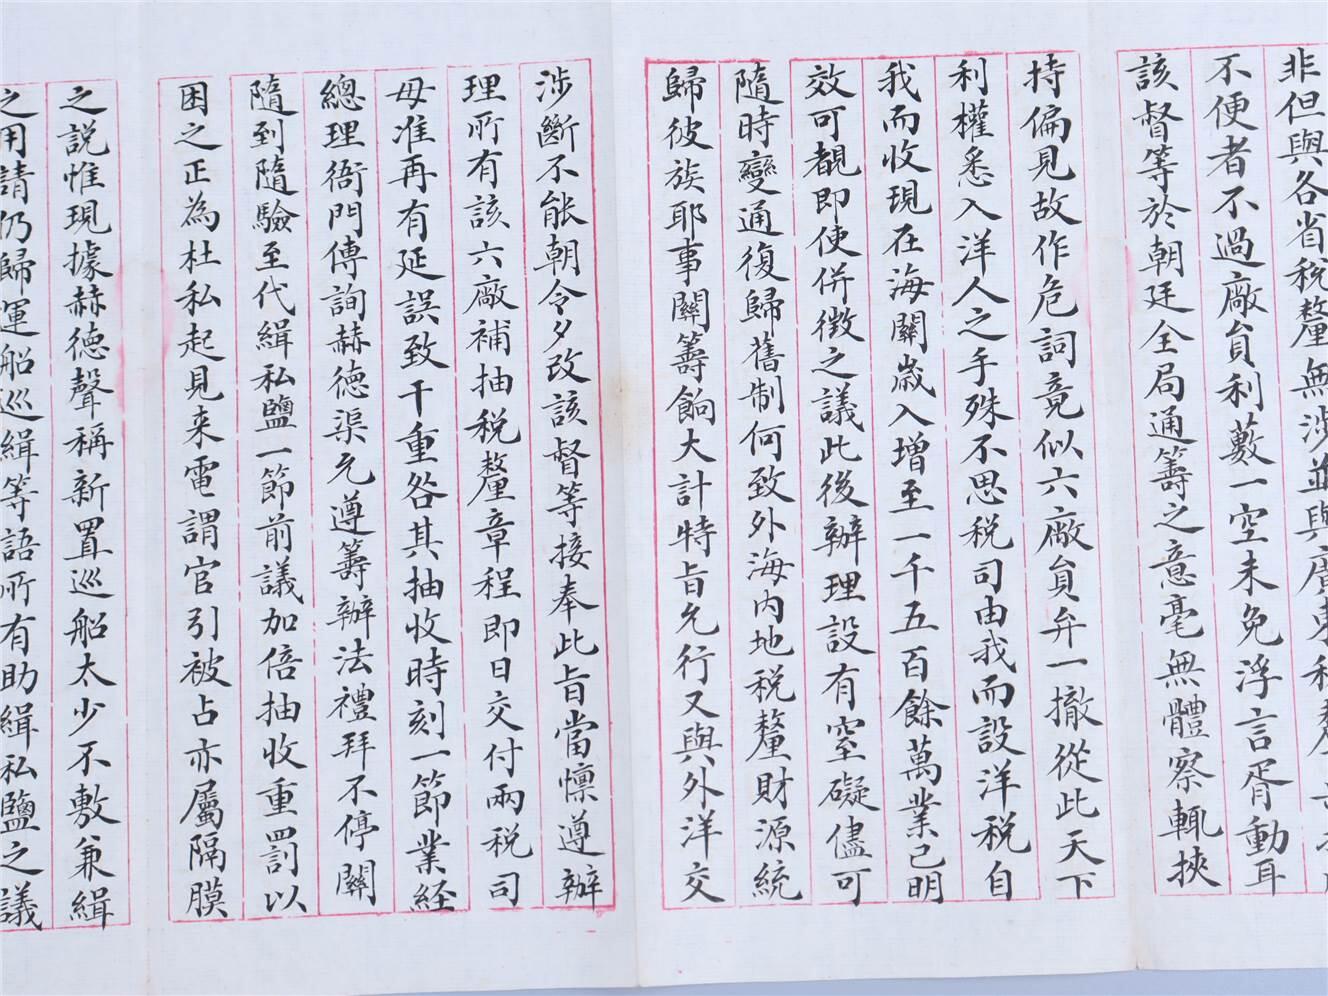 非但與各省稅釐無涉並與廣東稅釐
不便者不過廠員利藪一空未免浮言胥動耳
該督等於朝廷全局通籌之意毫無體察輒挾
持偏見故作危詞竟似六廠員弁一撤從此天下
利權悉入洋人之手殊不思稅司由我而設洋稅自
我而收現在海關歲入增至一千五百餘萬業已明
效可覩即使併徵之議此後辦理設有窒礙儘可
隨時變通復歸舊制何致外海內地稅釐財源統
歸彼族耶事關籌餉大計特旨允行又與外洋交
涉斷不能朝令夕改該督等接奉此旨當懍遵辦
理所有該六廠補抽稅釐章程即日交付兩稅司
毋准再有延誤致干重咎其抽收時刻一節業經
總理衙門傳詢赫德渠允遵籌辦法禮拜不停關
隨到隨驗至代緝私鹽一節前議加倍抽收重罰以
困之正為杜私起見来電謂官引被占亦屬隔膜
之說惟現據赫德聲稱新置巡船太少不敷兼緝
之用請仍歸運船巡緝等語所有助緝私鹽之議